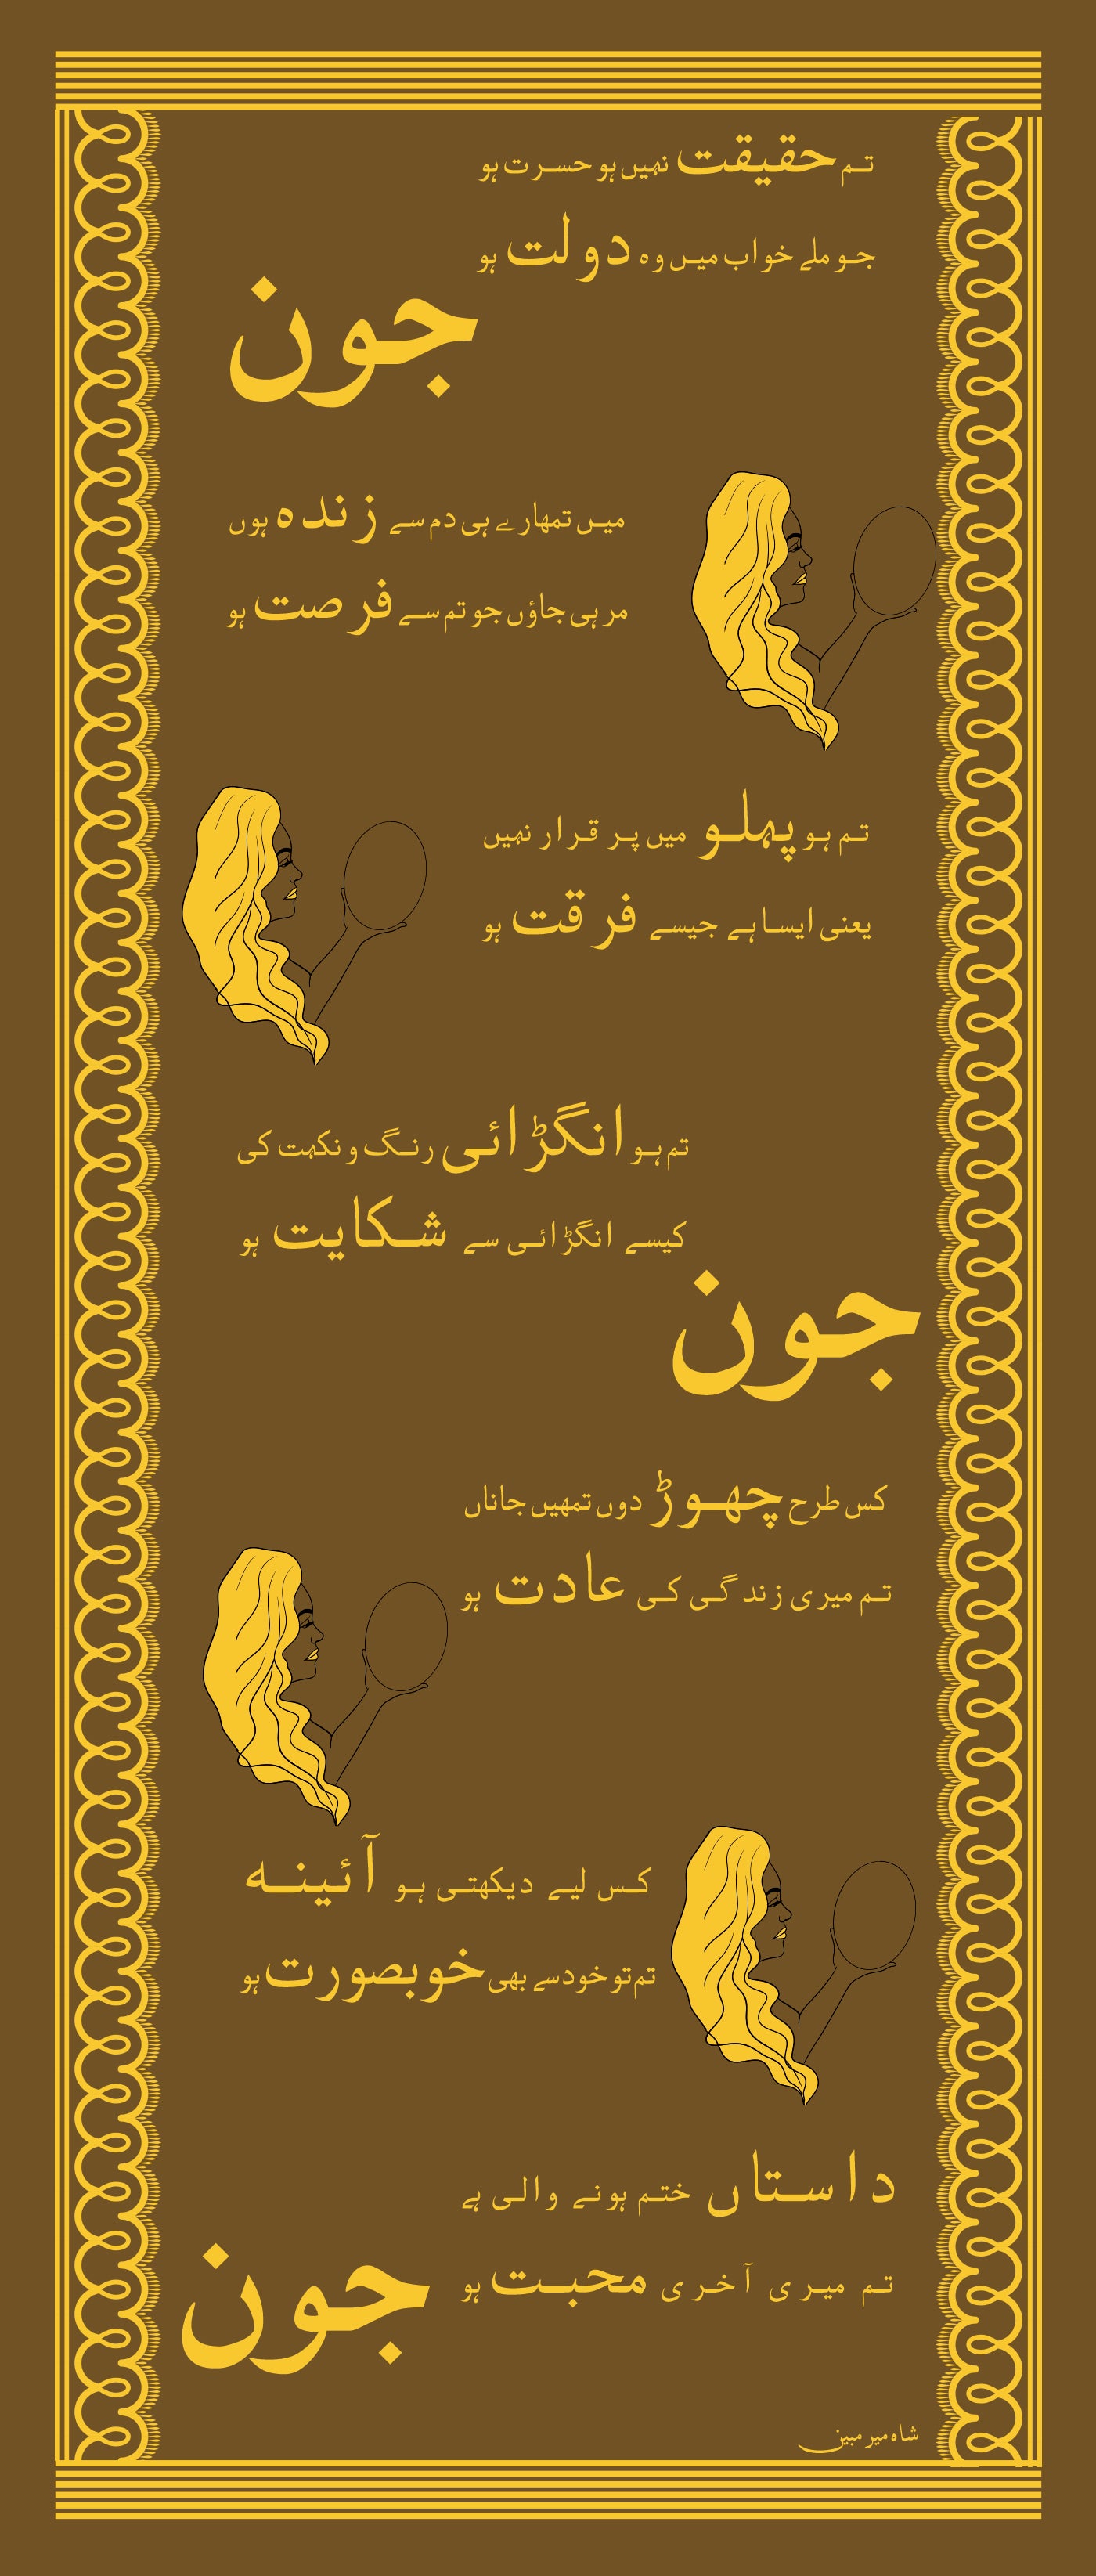 تم حقیقت نہیں ہو حسرت ہو
جو ملے خواب میں وہ دولت ہو
جون
میں تمھارے ہی دم سے زندہ ہوں
مر ہی جاؤں جو تم سے فرصت ہو
تم ہو پہلو میں پر قرار نہیں
یعنی ایسا ہے جیسے فرقت ہو
تم ہو انگڑائی رنگ و نکہت کی
کیسے انگڑائی سے شکایت ہو
جون
کس طرح چھوڑ دوں تمھیں جاناں
تم میری زندگی کی عادت ہو
کس لیے دیکھتی ہو آئینہ
تم تو خود سے بھی خوبصورت ہو
داستاں ختم ہونے والی ہے
تم میری آخری محبت ہو
جون
شاہ میر مبین